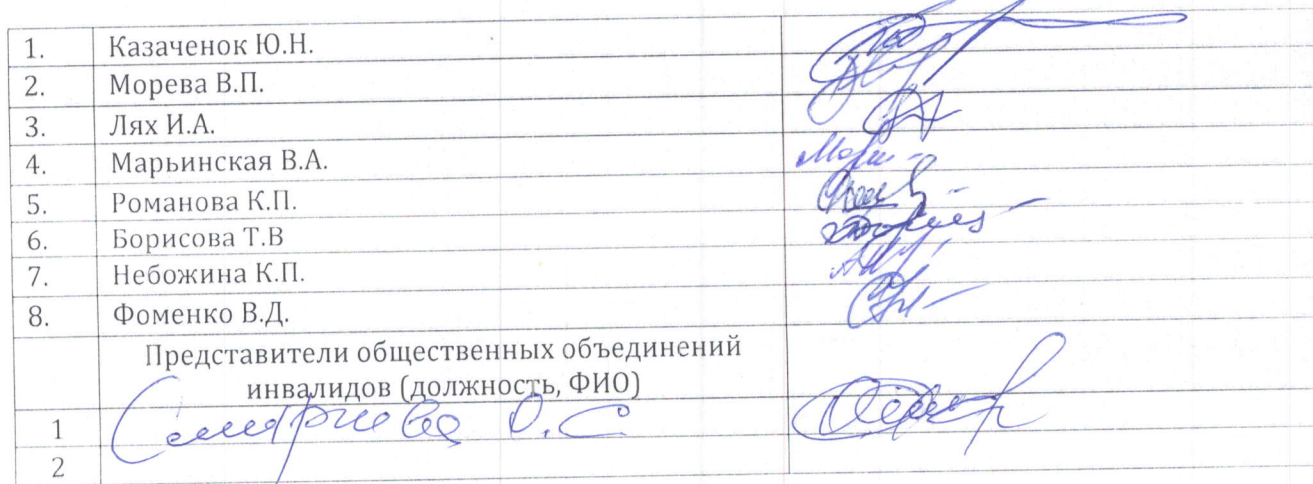 1. Казаченок Ю.Н.
2. Морева В.П.
3. Лях И.А.
4. Марьинская В.А.
5. Романова К.П.
6. Борисова Т.В
7. Небожина К.П.
8. Фоменко В.Д.
Представители общественных объединений
инвалидов (должность, ФИО)
1 О.С.
2